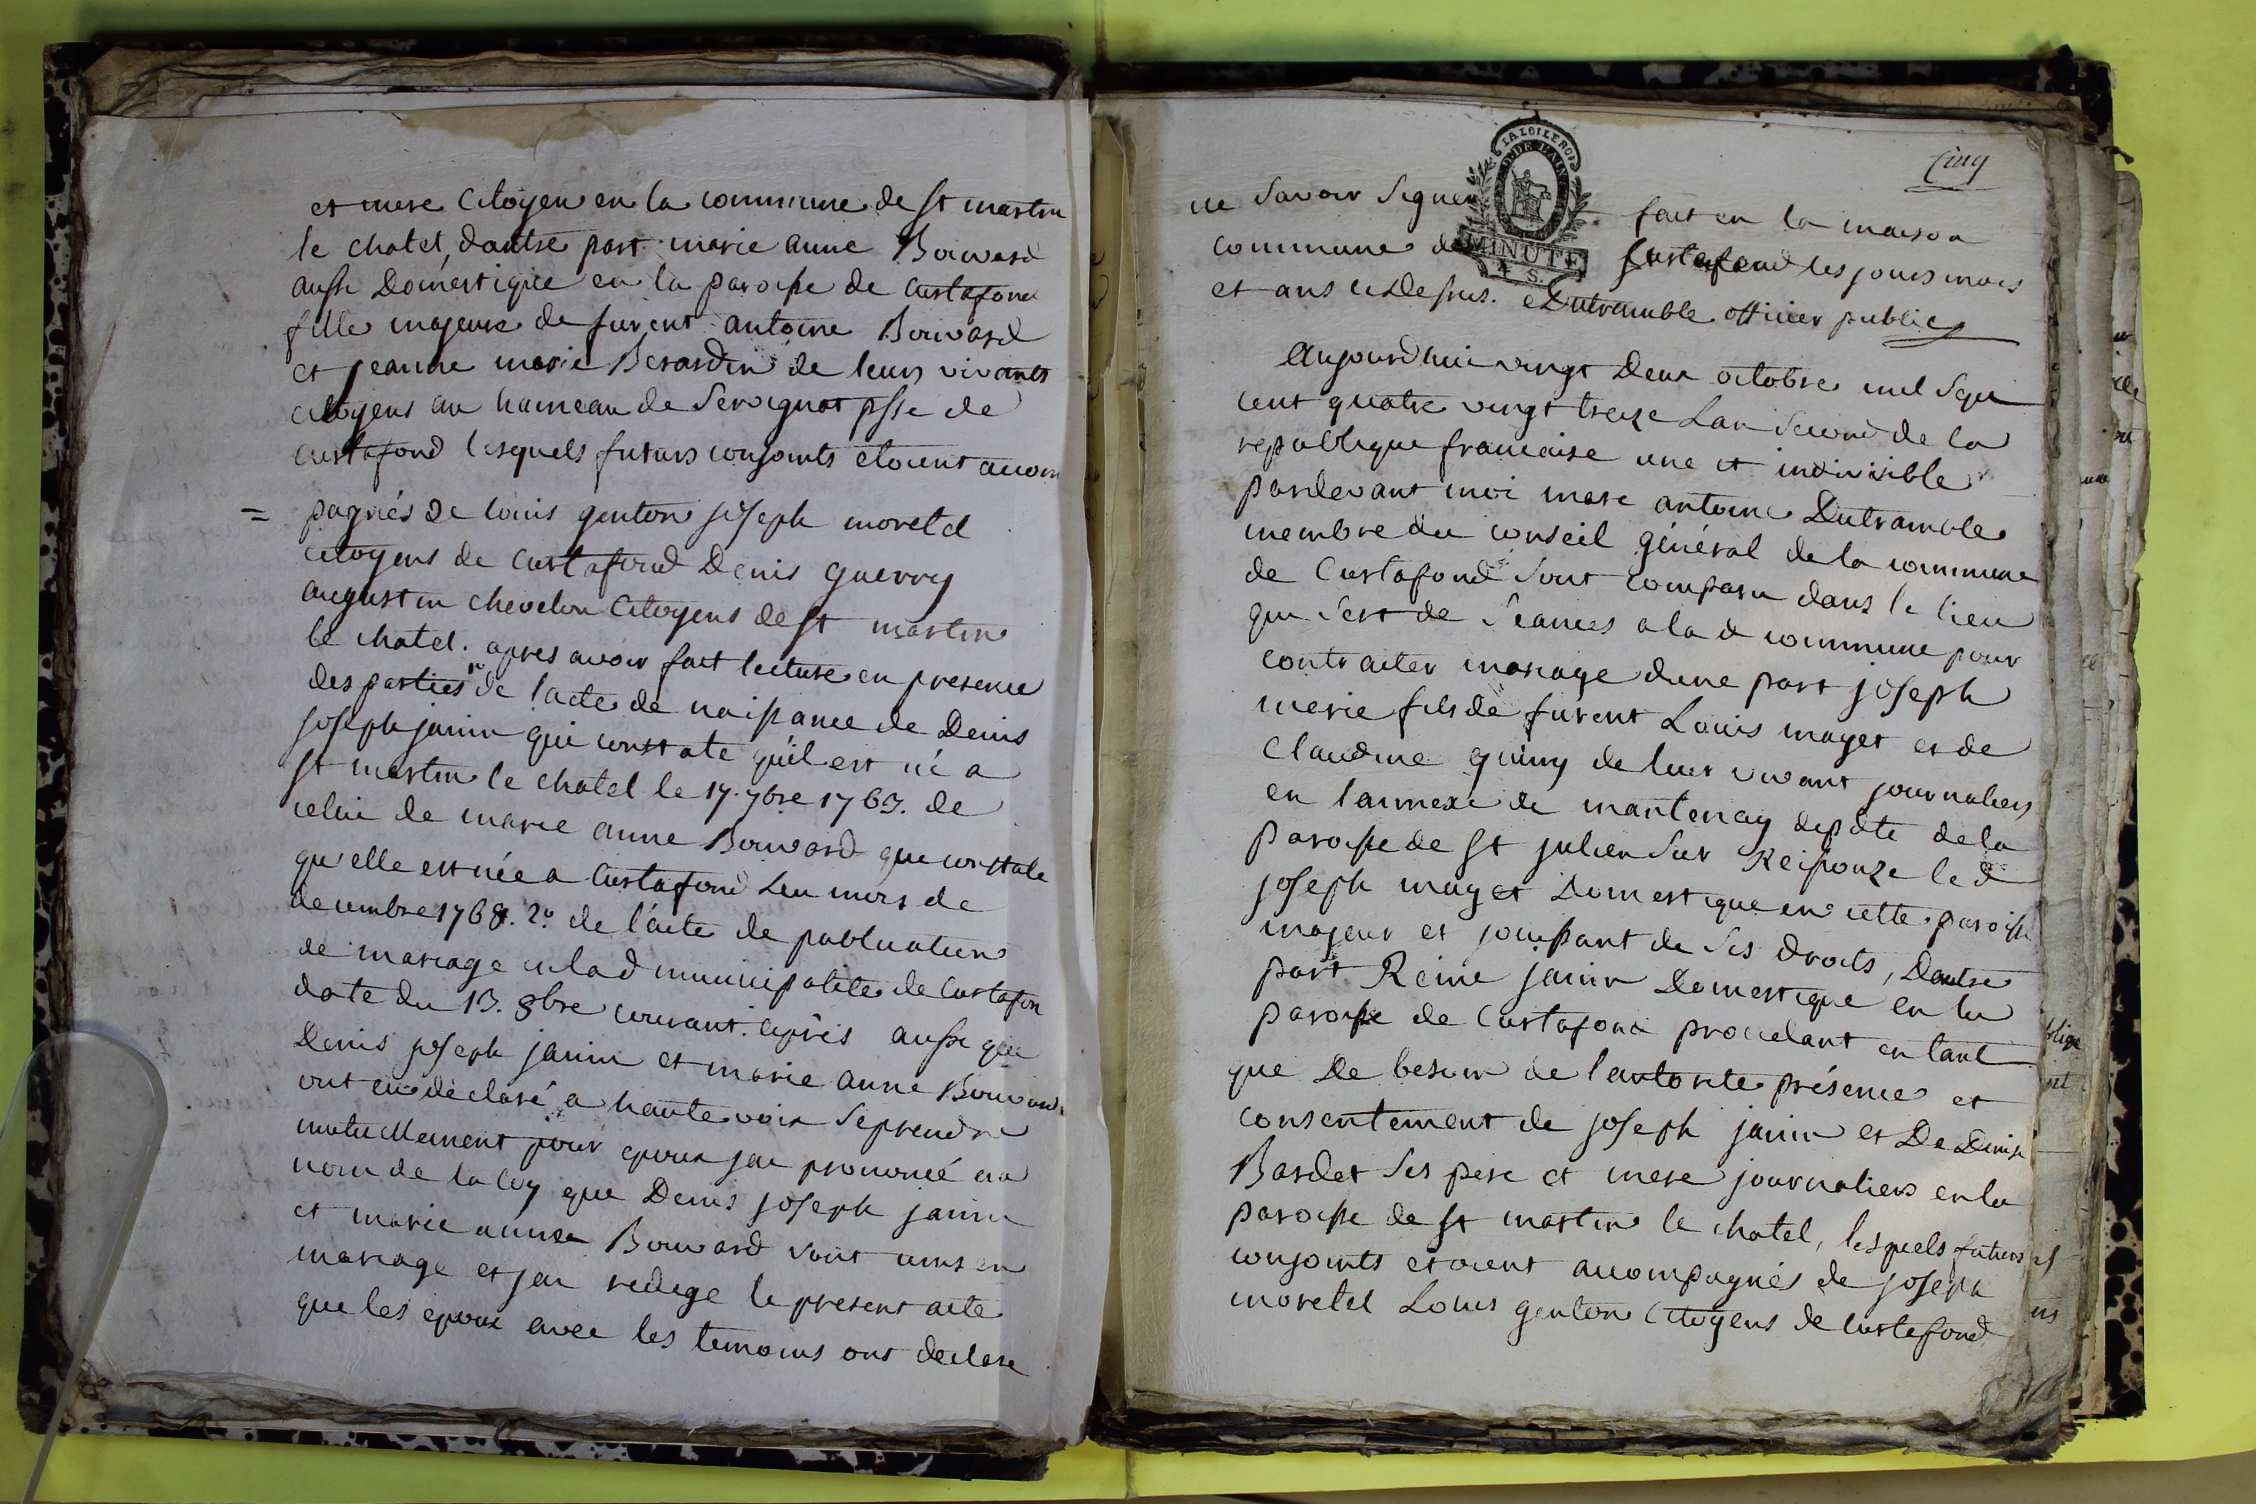 et mere Citoyen en la commune de st martin
le chatel, dautre part marie anne Bouvard
aussi Domestique en la paroisse de Curtafond
fille majeure de furent antoine Bouvard
et jeanne marie Berardin de leurs vivants
citoyens au hameau de Servignat psse de
curtafond lesquels futurs conjoints etoient accom
= pagnés de louis genton joseph moretel
citoyens de Curtafond Denis guerry
augustin chevelon Citoyens de st martin
le chatel. apres avoir fait lecture en presence
des parties 1° de l'acte de naissance de Denis
joseph janin qui constate qu'il est né a
st martin le chatel le 17. 7bre 1763. de
celui de marie anne Bouvard que constate
qu'elle est née a Curtafond dau mois de
decembre 1768. 2°. de l'acte de publication
de mariage a la d municipalité de Curtafon
date du 13. 8bre courant. après aussi que
Denis joseph janin et marie anne Bouvard
ont eu declaré a haute voix se prendre
mutuellement pour epoux jai prononcé au
nom de la loy que Denis joseph janin
et marie anne Bouvard sont unis en
mariage et jai redige le present acte
que les epoux avec les temoins ont declare
Cinq
LA LOI LE ROI
DE L'AIN
MINUTE
4 S.
ne savoir signer fait en la maison
commune de Curtafond les jours mois
et ans ci dessus. Dutramble officier public
Aujourdhui vingt Deux octobre mil sept
cent quatre vingt treize Lan second de la
republique francaise une et indivisible
pardevant moi marc antoine Dutramble
membre du conseil général de la commune
de Curtafond sont comparu dans le lieu
qui sert de séances a la d commune pour
contracter mariage dune part joseph
merie fils de furent Louis mayet et de
Claudine guiny de leur vivant journaliers
en l'annexe de mantenay depdte de la
paroisse de st julien sur Reissouze le d
joseph mayet Domestique en cette paroisse
majeur et jouissant de ses droits, Dautre
part Reine janin Domestique en la
paroisse de Curtafond procedant en tant
que De besoin de l'autorite présence et
consentement de joseph janin et De Denise
Bardet ses pere et mere journaliers en la
paroisse de st martin le chatel, lesquels futurs
conjoints etoient accompagnés de joseph
moretel Louis genton Citoyens de Curtafond